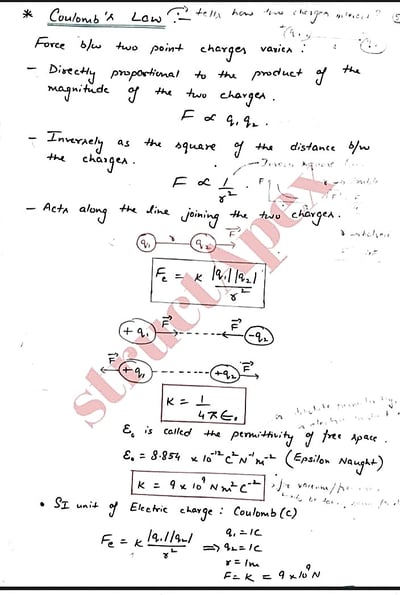 * Coulomb's Law :- tells how two charges interact?
Force b/w two point charges varies :
- Directly proportional to the product of the
magnitude of the two charges.
F ∝ q₁ q₂ .
- Inversely as the square of the distance b/w
the charges.
Inverse square
F ∝ 1/r² .
F
- Acts along the line joining the two charges.
q₁ r q₂ F⃗
Fe = K |q₁||q₂| / r²
+q₁ F⃗ F⃗ -q₂
F⃗ +q₁ +q₂ F⃗
K = 1 / 4πε₀
ε₀ is called the permittivity of free space.
ε₀ = 8.854 × 10⁻¹² C² N⁻¹ m⁻² (Epsilon Naught)
K = 9 × 10⁹ N m² C⁻²
• SI unit of Electric charge : Coulomb (C)
Fe = K |q₁||q₂| / r² ⇒ q₁ = 1C
q₂ = 1C
r = 1m
F = K = 9 × 10⁹ N
structApex